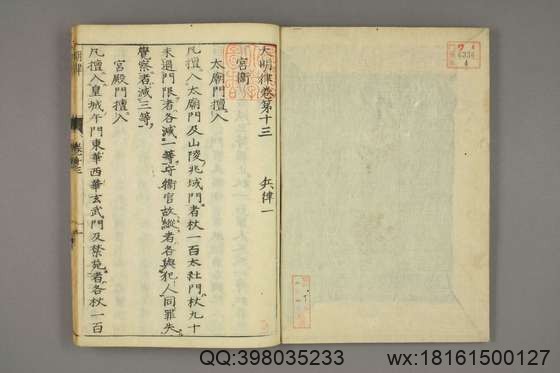 大明律卷第十三　兵律一
宮衛
太廟門擅入
凡擅入太廟門及山陵兆域門者杖一百太社門杖九十
未過門限者各減一等守衛官故縱者各與犯人同罪失
覺察者減三等
宮殿門擅入
凡擅入皇城午門東華西華玄武門及禁苑者各杖一百
4336
QQ:398035233
wx:18161500127